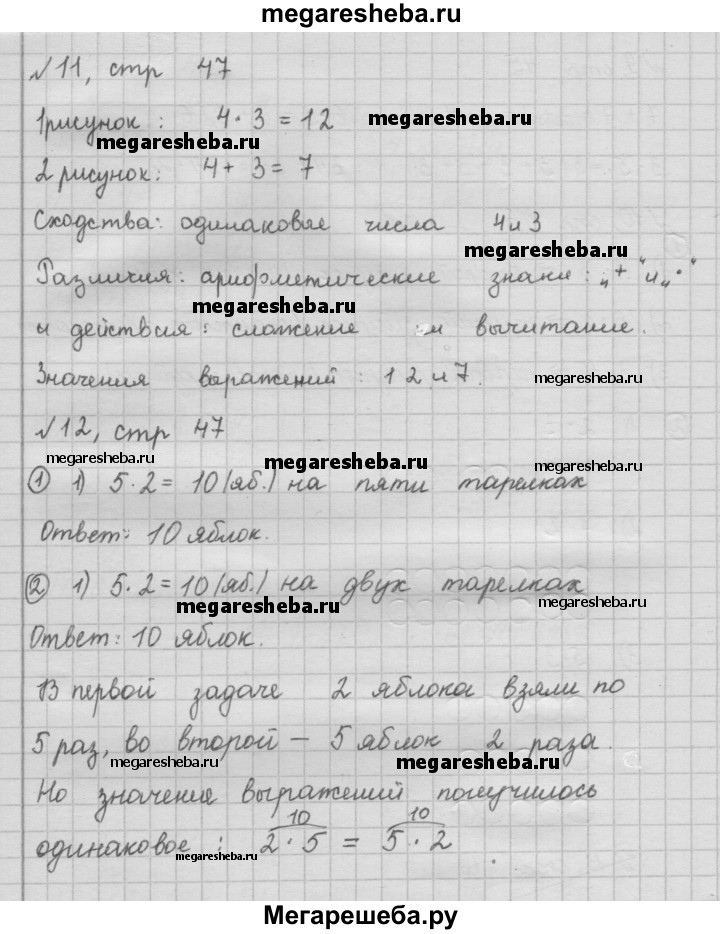 megaresheba.ru
№11, стр 47
1рисунок : 4·3 = 12 megaresheba.ru
megaresheba.ru
2 рисунок: 4+ 3 = 7
Сходства: одинаковые числа 4 и 3
megaresheba.ru
Различия: арифметические знаки: „+“ и „·“
megaresheba.ru
и действия: сложение и вычитание.
Значения выражений: 12 и 7. megaresheba.ru
№12, стр 47
megaresheba.ru megaresheba.ru megaresheba.ru
① 1) 5·2= 10 (яб.) на пяти тарелках
Ответ: 10 яблок.
② 1) 5·2=10 (яб.) на двух тарелках
megaresheba.ru megaresheba.ru
Ответ: 10 яблок.
В первой задаче 2 яблока взяли по
5 раз, во второй — 5 яблок 2 раза.
megaresheba.ru megaresheba.ru
Но значение выражений получилось
10 10
одинаковое : 2·5 = 5·2
megaresheba.ru
Мегарешеба.ру